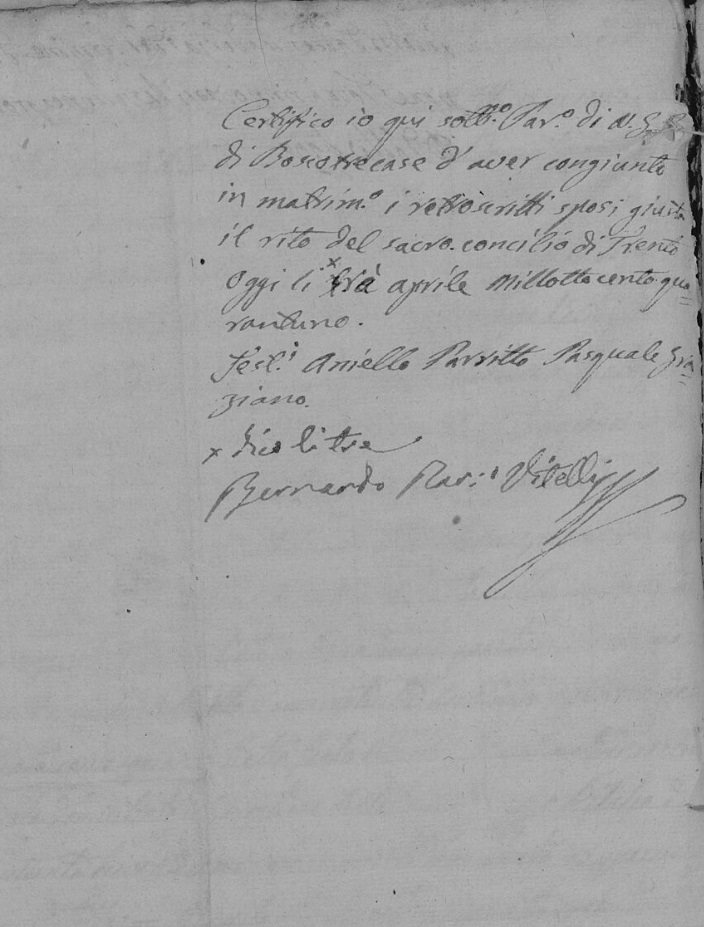 Certifico io qui sott.o Par.o di
di Boscotrecase d'aver congiunto
in matrim.o i retroscritti sposi giusta
il rito del sacro concilio di Trento
oggi li x aprile millottocentoqua=
rantuno.
Test.i Aniello Pasquale
ziano.
x dico li tre
Bernardo Par.o Vitelli